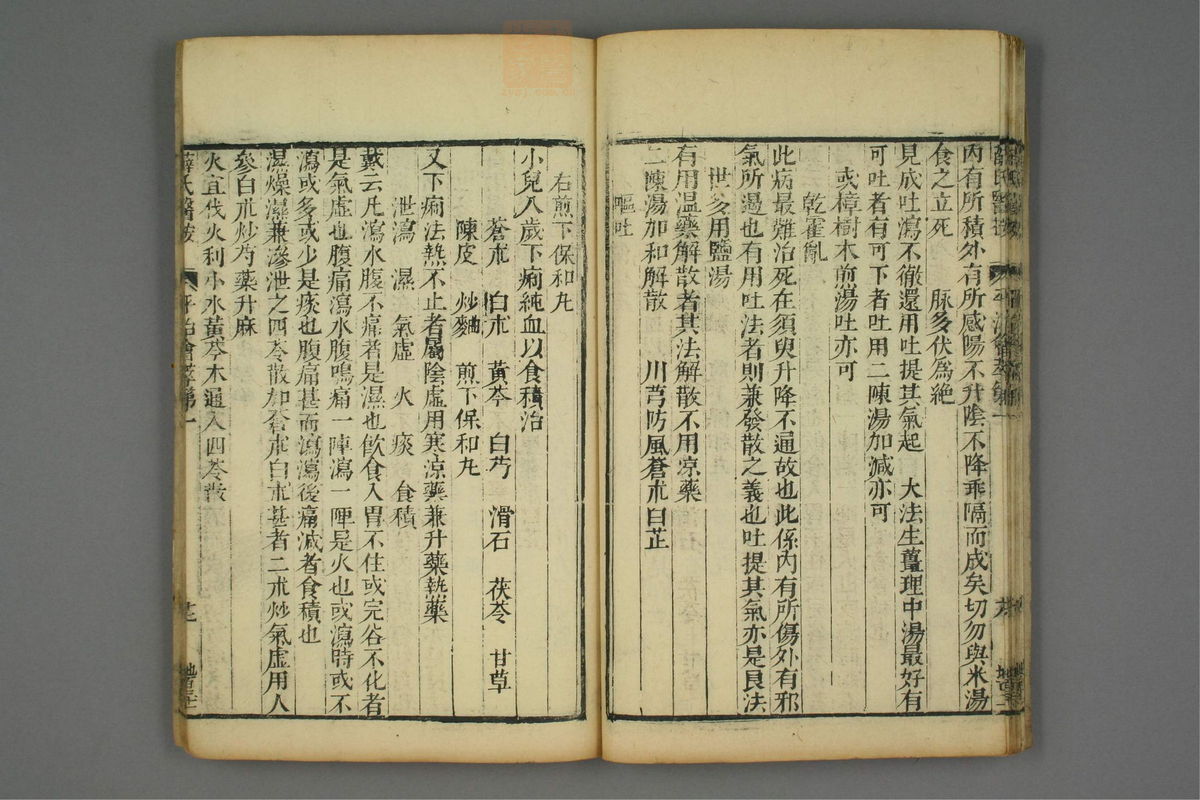 內有所積外有所感陽不升陰不降乖隔而成矣切勿與米湯
食之立死 脉多伏為絶
見成吐瀉不徹還用吐提其氣起 大法生薑理中湯最好有
可吐者有可下者吐用二陳湯加減亦可
或樟樹木煎湯吐亦可
乾霍亂
此病最難治死在須臾升降不通故也此係內有所傷外有邪
氣所遏也有用吐法者則兼發散之義也吐提其氣亦是良法
世多用鹽湯
有用溫藥解散者其法解散不用凉藥
二陳湯加和解散 川芎防風蒼朮白芷
嘔吐
右煎下保和丸
小兒八歲下痢純血以食積治
蒼朮 白朮 黃芩 白芍 滑石 茯苓 甘草
陳皮 炒麯 煎下保和丸
又下痢法熱不止者屬陰虛用寒涼藥兼升藥熱藥
泄瀉 濕 氣虛 火 痰 食積
戴云凡瀉水腹不痛者是濕也飲食入胃不住或完谷不化者
是氣虛也腹痛瀉水腹鳴痛一陣瀉一陣是火也或瀉時或不
瀉或多或少是痰也腹痛甚而瀉瀉後痛減者食積也
濕燥濕兼滲泄之四苓散加蒼朮白朮甚者二朮炒氣虛用人
參白朮炒芍藥升麻
火宜伐火利小水黃芩木通入四苓散
薛氏醫按 平治會萃第一